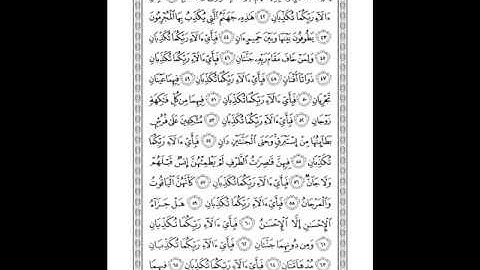 ءَالَآءِ رَبِّكُمَا تُكَذِّبَانِ ٤٢ هَٰذِهِۦ جَهَنَّمُ ٱلَّتِى يُكَذِّبُ بِهَا ٱلْمُجْرِمُونَ
٤٣ يَطُوفُونَ بَيْنَهَا وَبَيْنَ حَمِيمٍ ءَانٍ ٤٤ فَبِأَىِّ ءَالَآءِ رَبِّكُمَا تُكَذِّبَانِ
٤٥ وَلِمَنْ خَافَ مَقَامَ رَبِّهِۦ جَنَّتَانِ ٤٦ فَبِأَىِّ ءَالَآءِ رَبِّكُمَا تُكَذِّبَانِ
٤٧ ذَوَاتَآ أَفْنَانٍ ٤٨ فَبِأَىِّ ءَالَآءِ رَبِّكُمَا تُكَذِّبَانِ ٤٩ فِيهِمَا عَيْنَانِ
تَجْرِيَانِ ٥٠ فَبِأَىِّ ءَالَآءِ رَبِّكُمَا تُكَذِّبَانِ ٥١ فِيهِمَا مِن كُلِّ فَٰكِهَةٍ
زَوْجَانِ ٥٢ فَبِأَىِّ ءَالَآءِ رَبِّكُمَا تُكَذِّبَانِ ٥٣ مُتَّكِـِٔينَ عَلَىٰ فُرُشٍۭ
بَطَآئِنُهَا مِنْ إِسْتَبْرَقٍ وَجَنَى ٱلْجَنَّتَيْنِ دَانٍ ٥٤ فَبِأَىِّ ءَالَآءِ رَبِّكُمَا
تُكَذِّبَانِ ٥٥ فِيهِنَّ قَٰصِرَٰتُ ٱلطَّرْفِ لَمْ يَطْمِثْهُنَّ إِنسٌ قَبْلَهُمْ
وَلَا جَآنٌّ ٥٦ فَبِأَىِّ ءَالَآءِ رَبِّكُمَا تُكَذِّبَانِ ٥٧ كَأَنَّهُنَّ ٱلْيَاقُوتُ
وَٱلْمَرْجَانُ ٥٨ فَبِأَىِّ ءَالَآءِ رَبِّكُمَا تُكَذِّبَانِ ٥٩ هَلْ جَزَآءُ
ٱلْإِحْسَٰنِ إِلَّا ٱلْإِحْسَٰنُ ٦٠ فَبِأَىِّ ءَالَآءِ رَبِّكُمَا تُكَذِّبَانِ
٦١ وَمِن دُونِهِمَا جَنَّتَانِ ٦٢ فَبِأَىِّ ءَالَآءِ رَبِّكُمَا تُكَذِّبَانِ
٦٣ مُدْهَآمَّتَانِ ٦٤ فَبِأَىِّ ءَالَآءِ رَبِّكُمَا تُكَذِّبَانِ ٦٥ فِيهِمَا